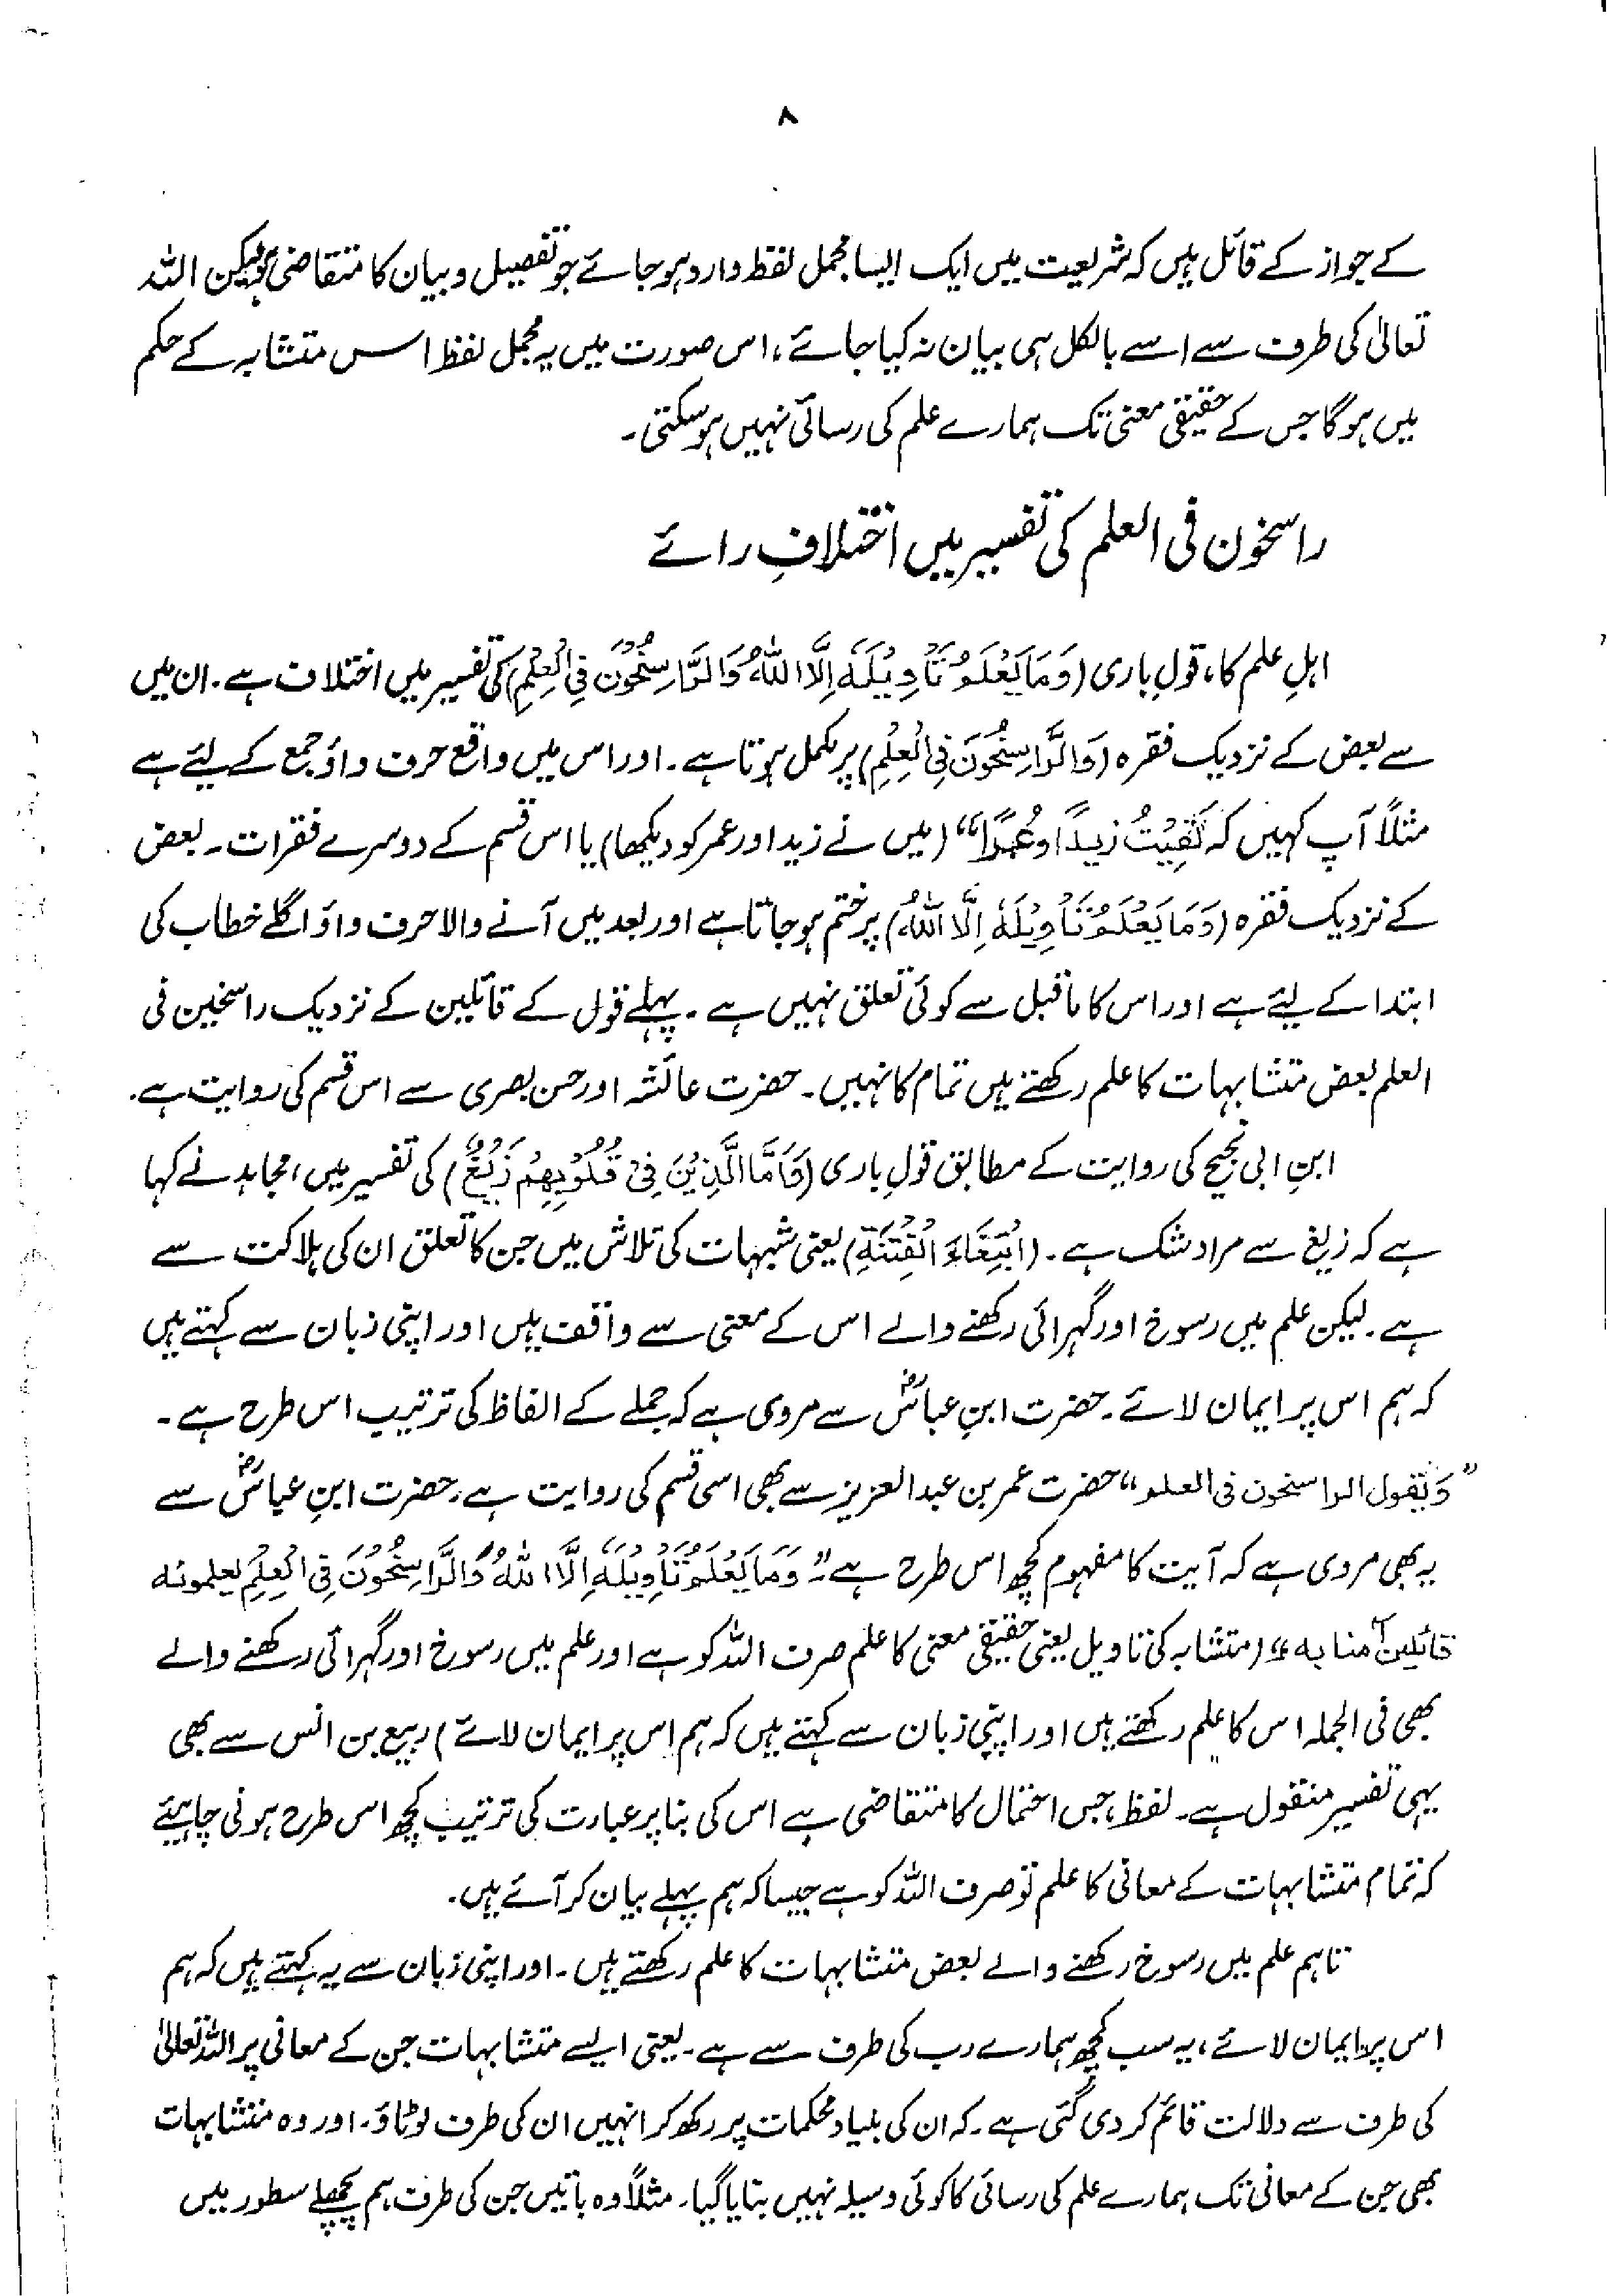 ۸
کے جواز کے قائل ہیں کہ شریعت میں ایک ایسا مجمل لفظ وارد ہو جائے جو تفصیل و بیان کا متقاضی ہو لیکن اللہ
تعالیٰ کی طرف سے اسے بالکل ہی بیان نہ کیا جائے، اس صورت میں یہ مجمل لفظ اس متشابہ کے حکم
میں ہوگا جس کے حقیقی معنی تک ہمارے علم کی رسائی نہیں ہو سکتی۔
راسخون فی العلم کی تفسیر میں اختلافِ رائے
اہلِ علم کا، قولِ باری (وَمَا يَعْلَمُ تَأْوِيْلَهٗ اِلَّا اللّٰهُ وَالرَّاسِخُوْنَ فِي الْعِلْمِ) کی تفسیر میں اختلاف ہے۔ ان میں
سے بعض کے نزدیک فقرہ (وَالرَّاسِخُوْنَ فِي الْعِلْمِ) پر مکمل ہوتا ہے۔ اور اس میں واقع حرف واؤ جمع کے لیئے ہے
مثلاً آپ کہیں کہ لَقِيْتُ زيدًا وعُمرًا“ (میں نے زید اور عمر کو دیکھا) یا اس قسم کے دوسرے فقرات۔ بعض
کے نزدیک فقرہ (وَمَا يَعْلَمُ تَأْوِيْلَهٗ اِلَّا اللّٰهُ) پر ختم ہو جاتا ہے اور بعد میں آنے والا حرف واؤ اگلے خطاب کی
ابتدا کے لیئے ہے اور اس کا ماقبل سے کوئی تعلق نہیں ہے۔ پہلے قول کے قائلین کے نزدیک راسخین فی
العلم بعض متشابہات کا علم رکھتے ہیں تمام کا نہیں۔ حضرت عائشہ اور حسن بصری سے اس قسم کی روایت ہے۔
ابنِ ابی نجیح کی روایت کے مطابق قولِ باری (فَاَمَّا الَّذِيْنَ فِيْ قُلُوْبِهِمْ زَيْغٌ) کی تفسیر میں، مجاہد نے کہا
ہے کہ زیغ سے مراد شک ہے۔ (ابْتِغَاءَ الْفِتْنَةِ) یعنی شبہات کی تلاش میں جن کا تعلق ان کی ہلاکت سے
ہے۔ لیکن علم میں رسوخ اور گہرائی رکھنے والے اس کے معنی سے واقف ہیں اور اپنی زبان سے کہتے ہیں
کہ ہم اس پر ایمان لائے۔ حضرت ابنِ عباسؓ سے مروی ہے کہ جملے کے الفاظ کی ترتیب اس طرح ہے۔
”وَيقول الراسخون فی العلم“ حضرت عمر بن عبدالعزیز سے بھی اسی قسم کی روایت ہے، حضرت ابنِ عباسؓ سے
یہ بھی مروی ہے کہ آیت کا مفہوم کچھ اس طرح ہے ”وَمَا يَعْلَمُ تَأْوِيْلَهٗ اِلَّا اللّٰهُ وَالرَّاسِخُوْنَ فِي الْعِلْمِ يعلمونه
قائلین آمنا به“ (متشابہ کی تاویل یعنی حقیقی معنی کا علم صرف اللہ کو ہے اور علم میں رسوخ اور گہرائی رکھنے والے
بھی فی الجملہ اس کا علم رکھتے ہیں اور اپنی زبان سے کہتے ہیں کہ ہم اس پر ایمان لائے) ربیع بن انس سے بھی
یہی تفسیر منقول ہے۔ لفظ، جس احتمال کا متقاضی ہے اس کی بنا پر عبارت کی ترتیب کچھ اس طرح ہونی چاہیئے
کہ تمام متشابہات کے معانی کا علم تو صرف اللہ کو ہے جیسا کہ ہم پہلے بیان کر آئے ہیں۔
تاہم علم میں رسوخ رکھنے والے بعض متشابہات کا علم رکھتے ہیں۔ اور اپنی زبان سے یہ کہتے ہیں کہ ہم
اس پر ایمان لائے، یہ سب کچھ ہمارے رب کی طرف سے ہے۔ یعنی ایسے متشابہات جن کے معانی پر اللہ تعالیٰ
کی طرف سے دلالت قائم کر دی گئی ہے۔ کہ ان کی بنیاد محکمات پر رکھ کر انہیں ان کی طرف لوٹاؤ۔ اور وہ متشابہات
بھی جن کے معانی تک ہمارے علم کی رسائی کا کوئی وسیلہ نہیں بتایا گیا۔ مثلاً وہ باتیں جن کی طرف ہم پچھلے سطور میں